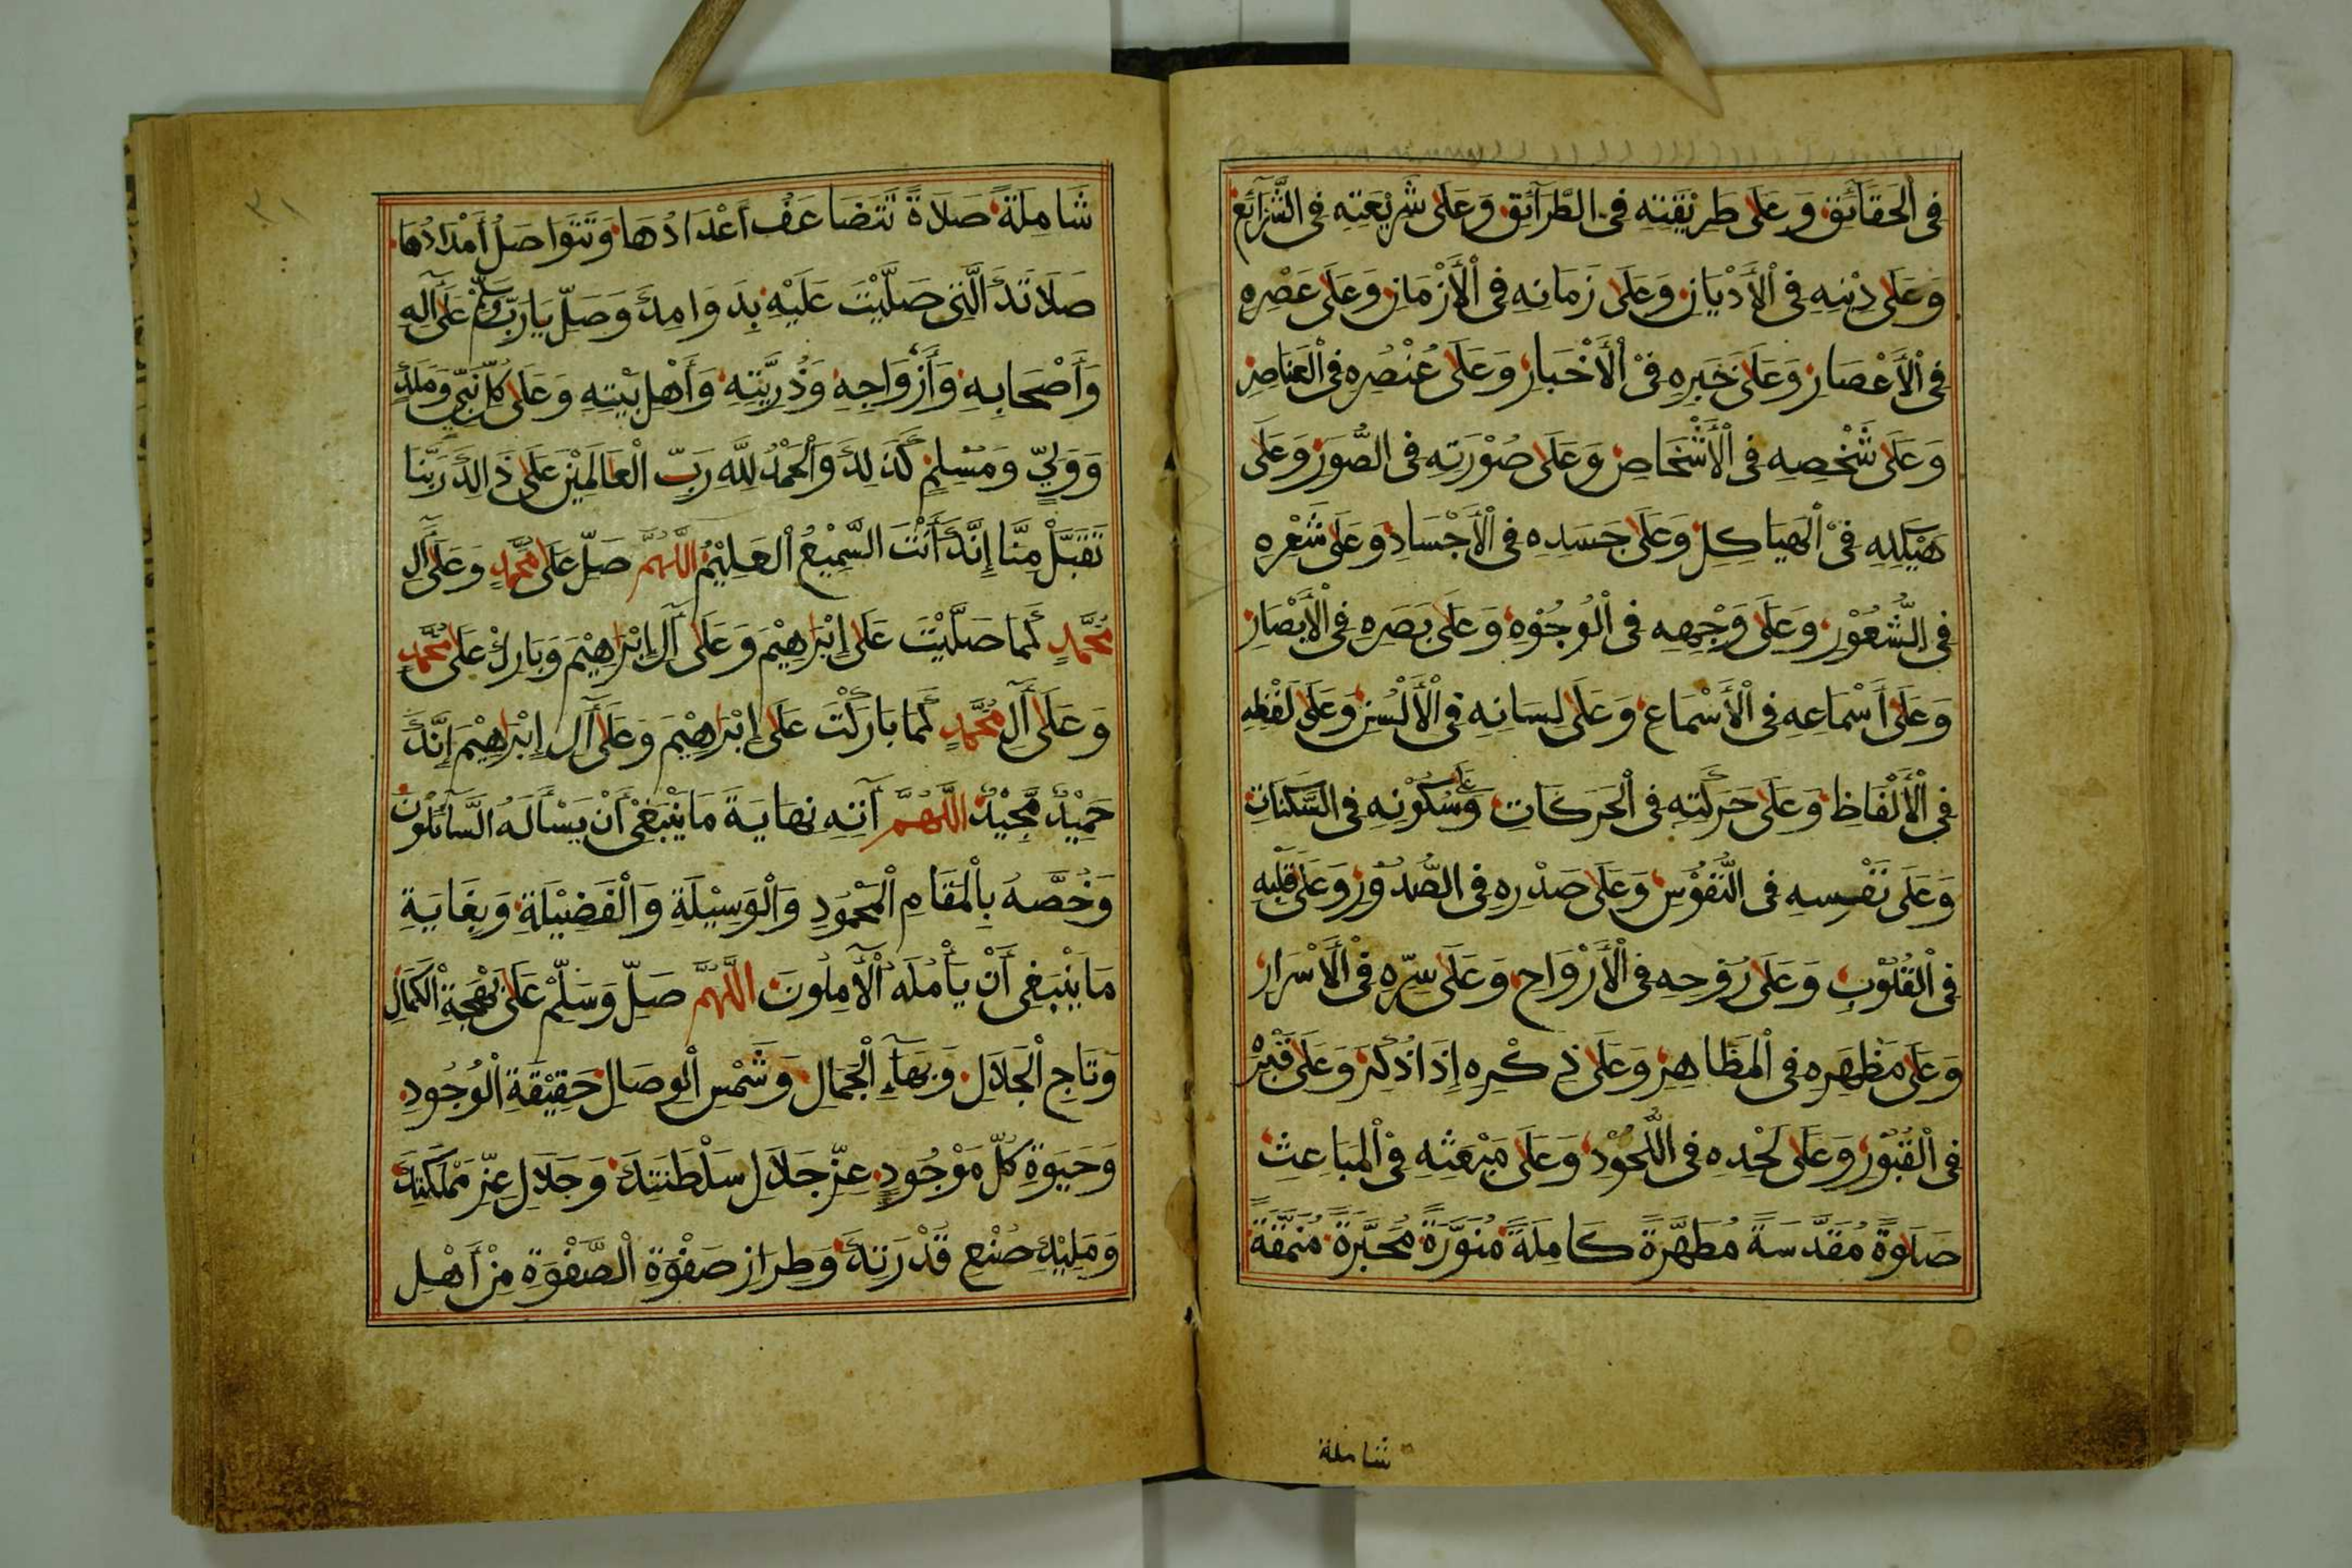 فِى الْحَقَآئِقِ وَعَلَى طَرِيْقَتِهِ فِى الطَّرَآئِقِ وَعَلَى شَرِيْعَتِهِ فِى الشَّرَآئِعِ
وَعَلَى دِيْنِهِ فِى الْأَدْيَانِ وَعَلَى زَمَانِهِ فِى الْأَزْمَانِ وَعَلَى عَصْرِهِ
فِى الْأَعْصَارِ وَعَلَى خَبَرِهِ فِىْ الْأَخْبَارِ وَعَلَى عُنْصُرِهِ فِى الْعَنَاصِرِ
وَعَلَى شَخْصِهِ فِى الْأَشْخَاصِ وَعَلَى صُوْرَتِهِ فِى الصُّوَرِ وَعَلَى
هَيْكَلِهِ فِىْ الْهَيَاكِلِ وَعَلَى جَسَدِهِ فِى الْأَجْسَادِ وَعَلَى شَعْرِهِ
فِى الشُّعُوْرِ وَعَلَى وَجْهِهِ فِى الْوُجُوْهِ وَعَلَى بَصَرِهِ فِى الْأَبْصَارِ
وَعَلَى أَسْمَاعِهِ فِى الْأَسْمَاعِ وَعَلَى لِسَانِهِ فِى الْأَلْسُنِ وَعَلَى لَفْظِهِ
فِى الْأَلْفَاظِ وَعَلَى حَرَكَتِهِ فِى الْحَرَكَاتِ وَعَلَى سُكُوْنِهِ فِى السَّكَنَاتِ
وَعَلَى نَفْسِهِ فِى النُّفُوْسِ وَعَلَى صَدْرِهِ فِى الصُّدُوْرِ وَعَلَى قَلْبِهِ
فِى الْقُلُوْبِ وَعَلَى رُوْحِهِ فِى الْأَرْوَاحِ وَعَلَى سِرِّهِ فِى الْأَسْرَارِ
وَعَلَى مَظْهَرِهِ فِى الْمَظَاهِرِ وَعَلَى ذِكْرِهِ إِذَا ذُكِرَ وَعَلَى قَبْرِهْ
فِى الْقُبُوْرِ وَعَلَى لَحْدِهِ فِى اللُّحُوْدِ وَعَلَى مَبْعَثِهِ فِىْ الْمَبَاعِثِ
صَلَوةً مُقَدَّسَةً مُطَهَّرَةً كَامِلَةً مُنَوَّرَةً مُحَبَّرَةً مُنَمَّقَةً
شاملة
شَامِلَةً صَلَاةً تَتَضَاعَفُ أَعْدَادُهَا وَتَتَوَاصَلُ أَمْدَادُهَا
صَلَاتَكَ الَّتِى صَلَّيْتَ عَلَيْهِ بِدَوَامِكَ وَصَلِّ يَا رَبِّ وَسَلِّمْ عَلَى آلِهِ
وَأَصْحَابِهِ وَأَزْوَاجِهِ وَذُرِّيَّتِهِ وَأَهْلِ بَيْتِهِ وَعَلَى كُلِّ نَبِيٍّ وَمَلَكٍ
وَوَلِيٍّ وَمُسْلِمٍ كَذَلِكَ وَالْحَمْدُ لِلَّهِ رَبِّ الْعَالَمِيْنَ عَلَى ذَالِكَ رَبَّنَا
تَقَبَّلْ مِنَّا إِنَّكَ أَنْتَ السَّمِيْعُ الْعَلِيْمُ اللَّهُمَّ صَلِّ عَلَى مُحَمَّدٍ وَعَلَى آلِ
مُحَمَّدٍ كَمَا صَلَّيْتَ عَلَى إِبْرَاهِيْمَ وَعَلَى آلِ إِبْرَاهِيْمَ وَبَارِكْ عَلَى مُحَمَّدٍ
وَعَلَى آلِ مُحَمَّدٍ كَمَا بَارَكْتَ عَلَى إِبْرَاهِيْمَ وَعَلَى آلِ إِبْرَاهِيْمَ إِنَّكَ
حَمِيْدٌ مَجِيْدٌ اللَّهُمَّ آتِهِ نِهَايَةَ مَا يَنْبَغِىْ أَنْ يَسْأَلَهُ السَّآئِلُوْنَ
وَخُصَّهُ بِالْمَقَامِ الْمَحْمُودِ وَالْوَسِيْلَةِ وَالْفَضِيْلَةِ وَبِغَايَةِ
مَا يَنْبَغِى أَنْ يَأْمُلَهُ الْآمِلُونَ اللَّهُمَّ صَلِّ وَسَلِّمْ عَلَى بَهْجَةِ الْكَمَالِ
وَتَاجِ الْجَلَالِ وَبَهَآءِ الْجَمَالِ وَشَمْسِ الْوِصَالِ حَقِيْقَةِ الْوُجُودِ
وَحَيَوةِ كُلِّ مَوْجُودٍ عِزِّ جَلَالِ سَلْطَنَتِكَ وَجَلَالِ عِزِّ مَمْلَكَتِكَ
وَمَلِيْكِ صُنْعِ قُدْرَتِكَ وَطِرَازِ صَفْوَةِ الصَّفْوَةِ مِنْ أَهْلِ